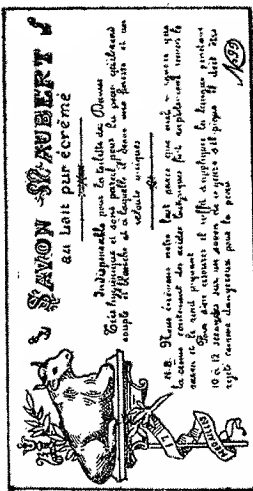 SAVON MAUBERT
au Lait pur écrémé
Indispensable pour la toilette des Dames
Très hygiénique et sans pareil pour la peau qu'il rend
souple et blanche et à laquelle il donne une finesse et un
velouté uniques
N.B. Nous écrémons notre lait parce que nul n'ignore que
la crème contenant des acides butyriques fait rapidement rancir le
savon et le rend piquant
Pour s'en assurer il suffit d'appliquer la langue pendant
10 à 12 secondes sur un savon de ce genre s'il pique il doit être
rejeté comme dangereux pour la peau